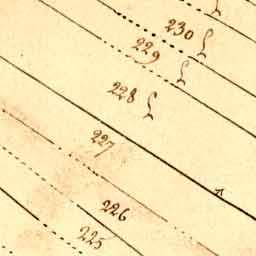 230
229
228
227
226
225